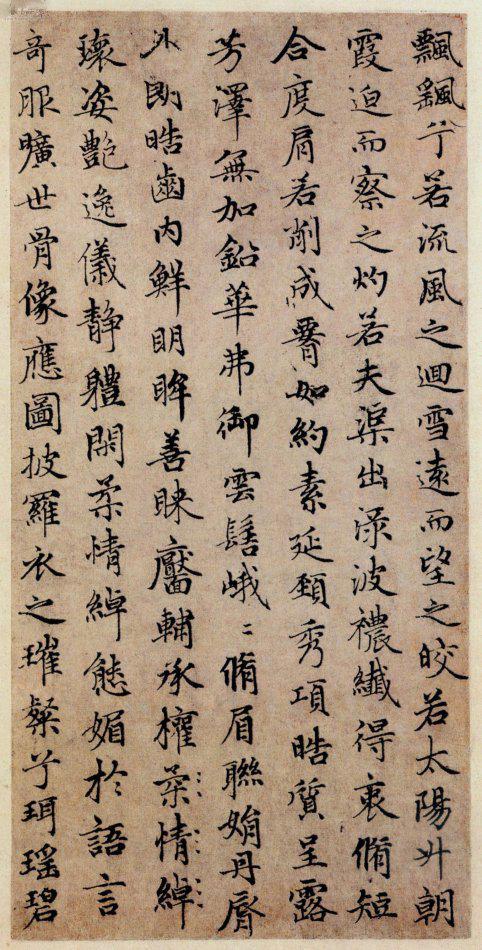 飄飖兮若流風之迴雪遠而望之晈若太陽升朝
霞迫而察之灼若夫渠出淥波穠纖得衷脩短
合度肩若削成䙅如約素延頸秀項晧質呈露
芳澤無加鉛華弗御雲髻峨〻脩眉聯娟丹脣
外朗晧齒內鮮明眸善睞靨輔承權柔情綽
瓌姿艷逸儀靜軆閑柔情綽態媚於語言
奇服曠世骨像應圖披羅衣之璀粲兮珥瑤碧